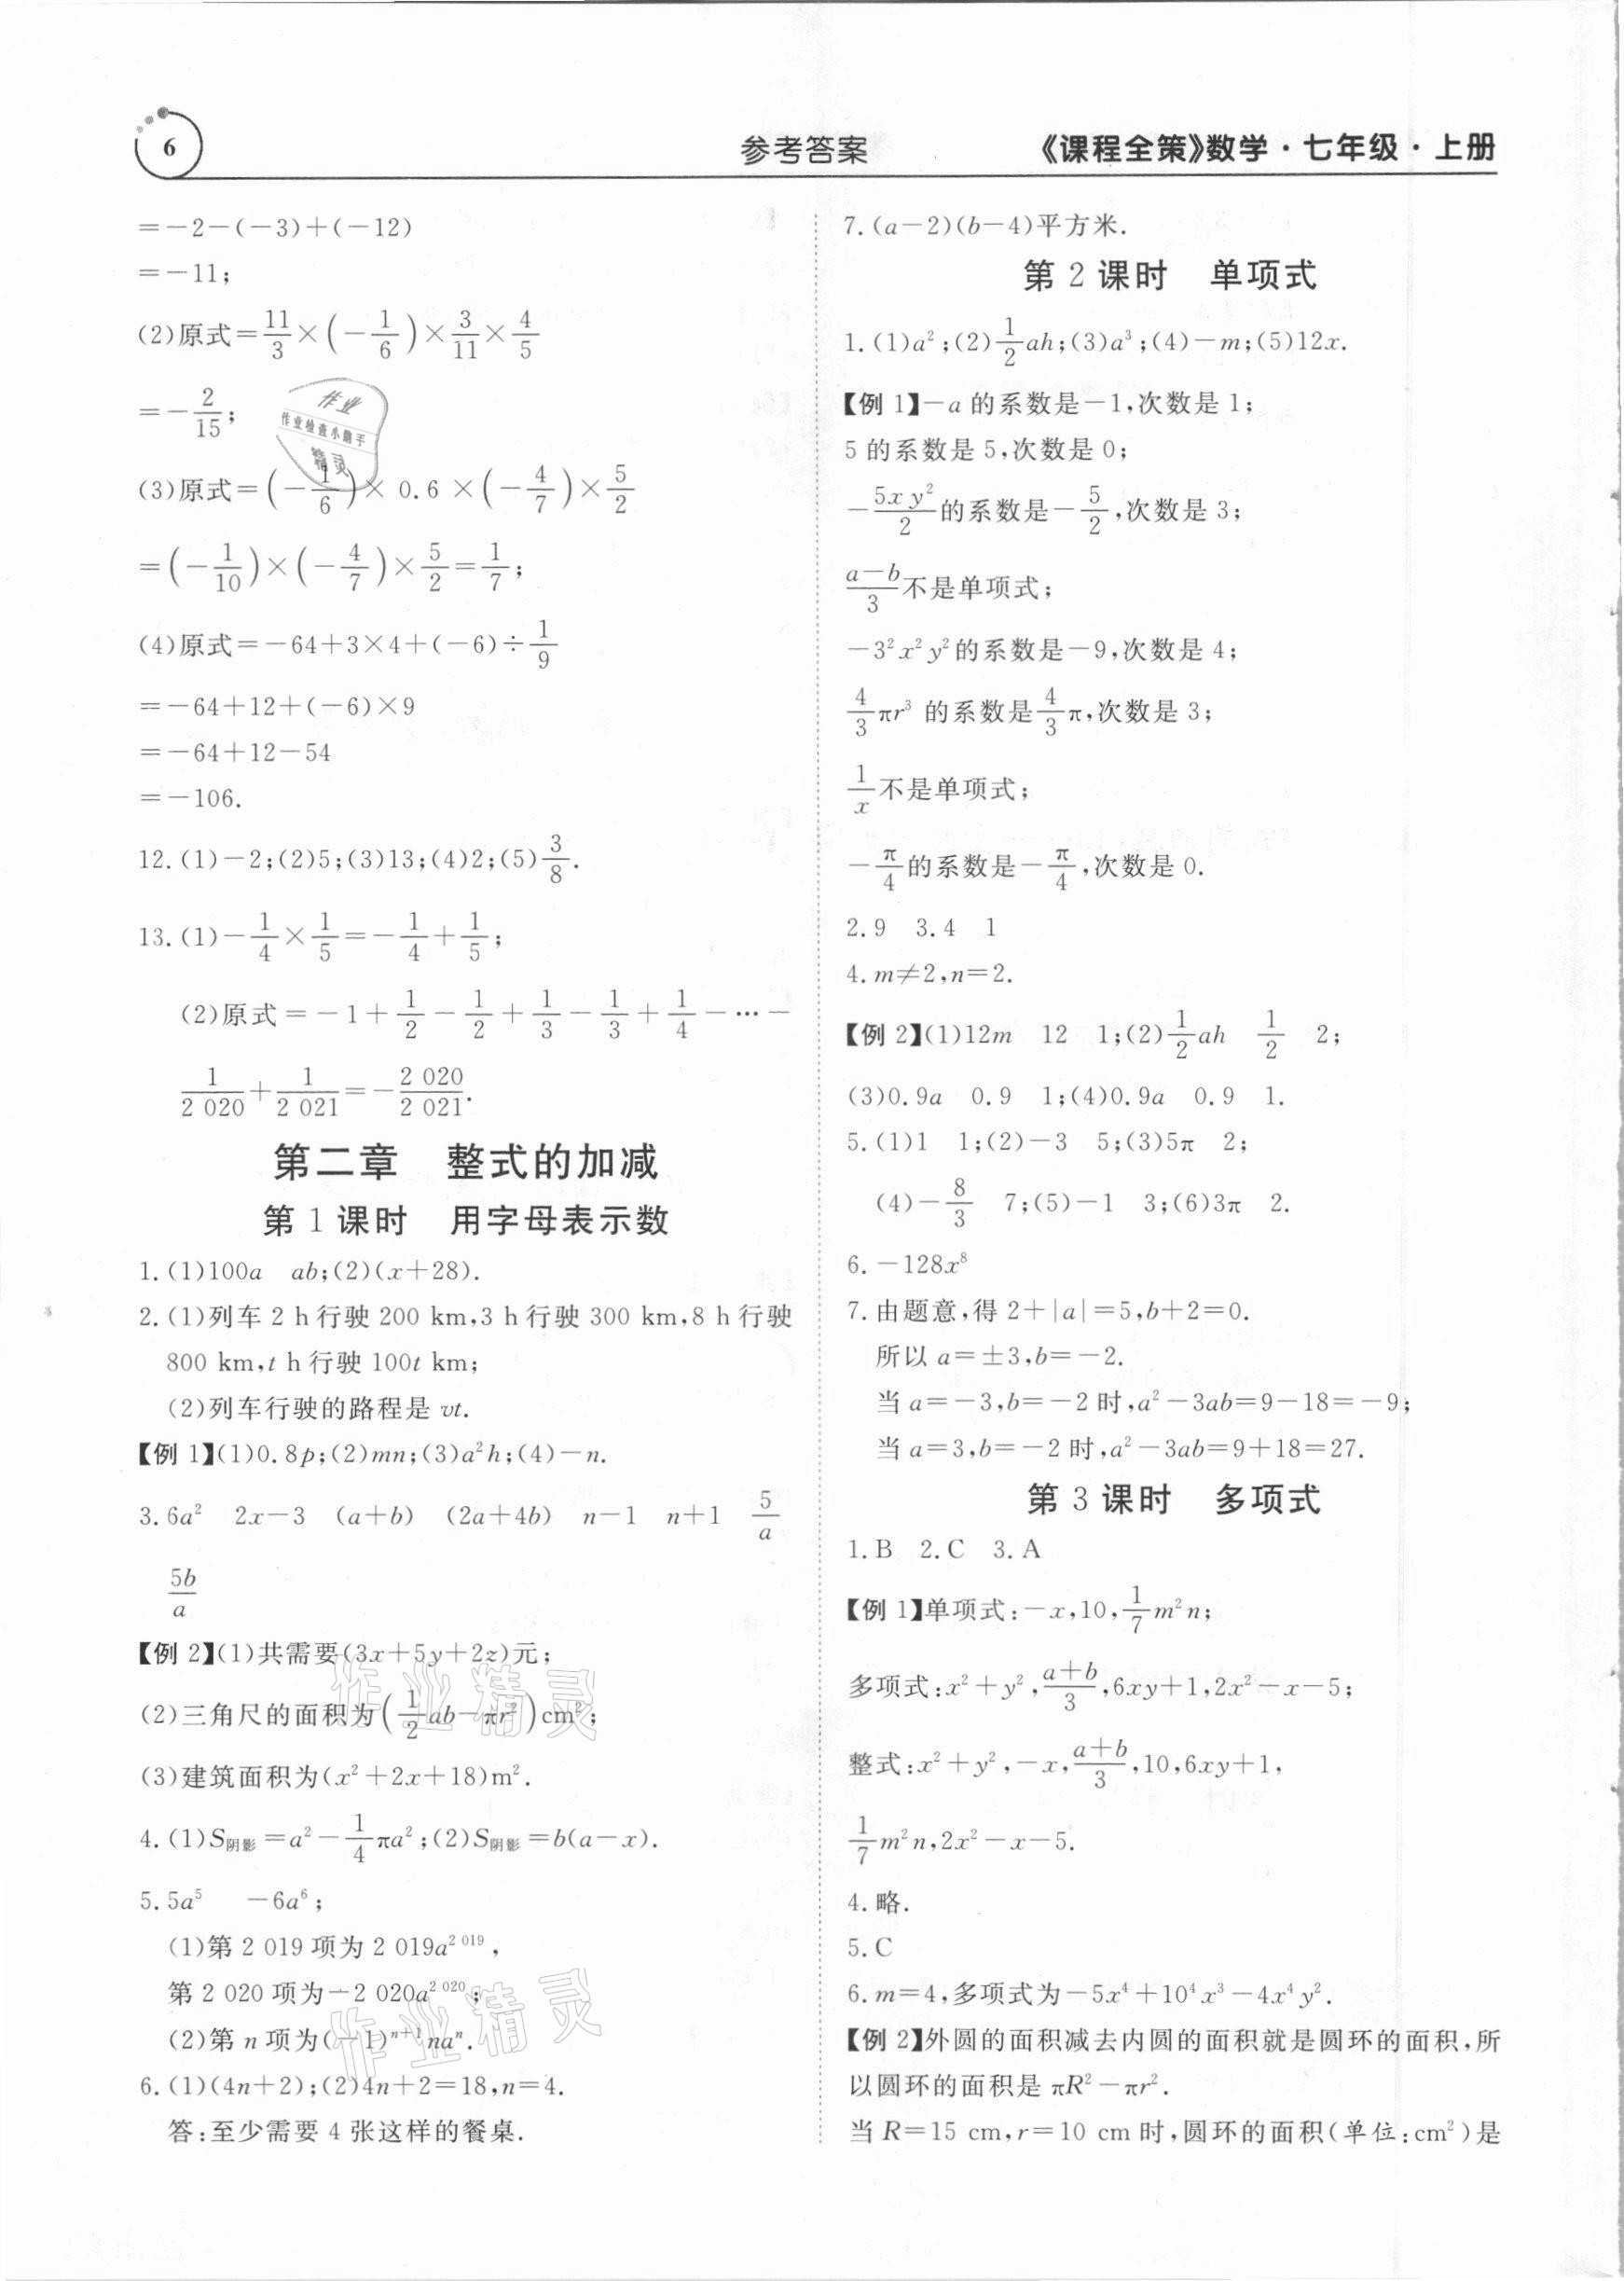 6
参考答案
《课程全策》数学·七年级·上册
=-2-(-3)+(-12)
=-11;
(2)原式=11/3×(-1/6)×3/11×4/5
=-2/15;
(3)原式=(-1/6)×0.6×(-4/7)×5/2
=(-1/10)×(-4/7)×5/2=1/7;
(4)原式=-64+3×4+(-6)÷1/9
=-64+12+(-6)×9
=-64+12-54
=-106.
12.(1)-2;(2)5;(3)13;(4)2;(5)3/8.
13.(1)-1/4×1/5=-1/4+1/5;
(2)原式=-1+1/2-1/2+1/3-1/3+1/4-…-
1/2 020+1/2 021=-2 020/2 021.
第二章 整式的加减
第1课时 用字母表示数
1.(1)100a ab;(2)(x+28).
2.(1)列车2 h行驶200 km,3 h行驶300 km,8 h行驶
800 km,t h行驶100t km;
(2)列车行驶的路程是vt.
【例1】(1)0.8p;(2)mn;(3)a²h;(4)-n.
3.6a² 2x-3 (a+b) (2a+4b) n-1 n+1 5/a
5b/a
【例2】(1)共需要(3x+5y+2z)元;
(2)三角尺的面积为(1/2ab-πr²)cm²;
(3)建筑面积为(x²+2x+18)m².
4.(1)S阴影=a²-1/4πa²;(2)S阴影=b(a-x).
5.5a⁵ -6a⁶;
(1)第2 019项为2 019a²⁰¹⁹,
第2 020项为-2 020a²⁰²⁰;
(2)第n项为(-1)ⁿ⁺¹naⁿ.
6.(1)(4n+2);(2)4n+2=18,n=4.
答:至少需要4张这样的餐桌.
7.(a-2)(b-4)平方米.
第2课时 单项式
1.(1)a²;(2)1/2ah;(3)a³;(4)-m;(5)12x.
【例1】-a的系数是-1,次数是1;
5的系数是5,次数是0;
-5xy²/2的系数是-5/2,次数是3;
a-b/3不是单项式;
-3²x²y²的系数是-9,次数是4;
4/3πr³的系数是4/3π,次数是3;
1/x不是单项式;
-π/4的系数是-π/4,次数是0.
2.9 3.4 1
4.m≠2,n=2.
【例2】(1)12m 12 1;(2)1/2ah 1/2 2;
(3)0.9a 0.9 1;(4)0.9a 0.9 1.
5.(1)1 1;(2)-3 5;(3)5π 2;
(4)-8/3 7;(5)-1 3;(6)3π 2.
6.-128x⁸
7.由题意,得2+|a|=5,b+2=0.
所以a=±3,b=-2.
当a=-3,b=-2时,a²-3ab=9-18=-9;
当a=3,b=-2时,a²-3ab=9+18=27.
第3课时 多项式
1.B 2.C 3.A
【例1】单项式:-x,10,1/7m²n;
多项式:x²+y²,a+b/3,6xy+1,2x²-x-5;
整式:x²+y²,-x,a+b/3,10,6xy+1,
1/7m²n,2x²-x-5.
4.略.
5.C
6.m=4,多项式为-5x⁴+10⁴x³-4x⁴y².
【例2】外圆的面积减去内圆的面积就是圆环的面积,所
以圆环的面积是πR²-πr².
当R=15 cm,r=10 cm时,圆环的面积(单位:cm²)是
作业
作业检查小助手
精灵
作业精灵
作业精灵